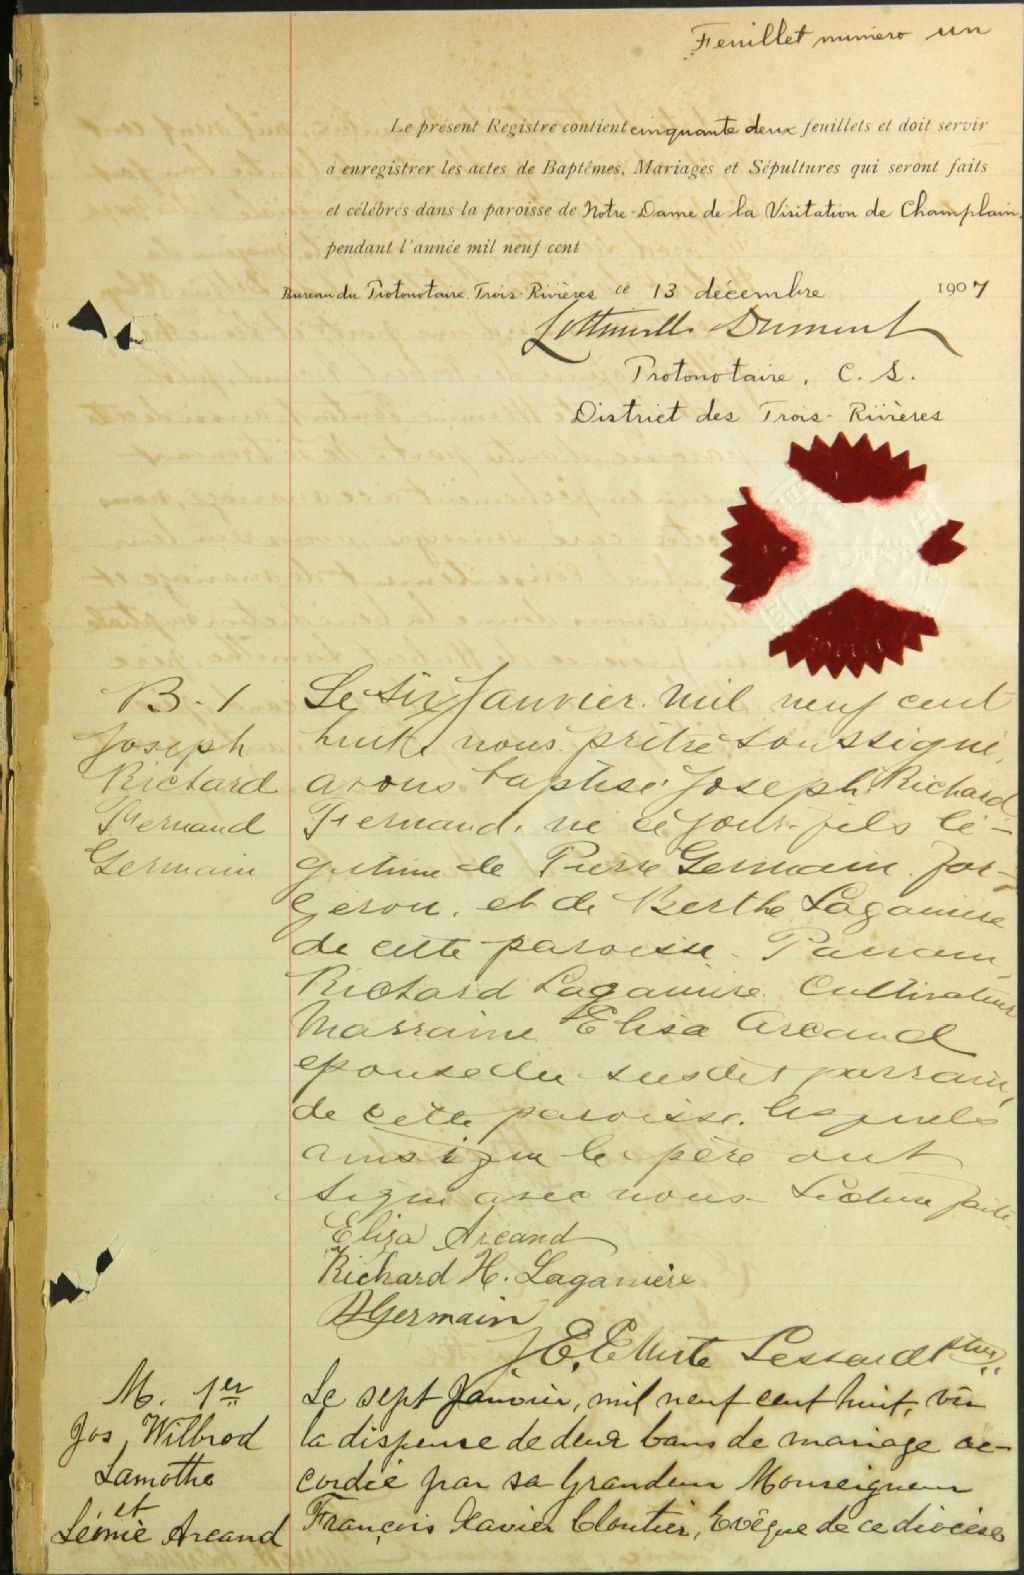 Feuillet numéro un
Le présent Registre contient cinquante deux feuillets et doit servir
à enregistrer les actes de Baptêmes, Mariages et Sépultures qui seront faits
et célébrés dans la paroisse de Notre-Dame de la Visitation de Champlain,
pendant l'année mil neuf cent
Bureau du Protonotaire, Trois-Rivières ce 13 décembre 1907
Dumont
Protonotaire, C. S.
District des Trois-Rivières
B-1
Joseph
Richard
Fernand
Germain
Le six Janvier mil neuf cent
huit, nous prêtre soussigné,
avons baptisé Joseph Richard
Fernand, né ce jour, fils lé-
gitime de Pierre Germain for-
geron, et de Berthe Laganière
de cette paroisse. Parrain,
Richard Laganière Cultivateur
Marraine Elisa Arcand
epouse du susdit parrain,
de cette paroisse, lesquels
ainsi que le père ont
signé avec nous. Lecture faite.
Eliza Arcand
Richard H. Laganière
Germain
Lessard ptre
M. 1er
Jos. Wilbrod
Lamothe
et
Léonie Arcand
Le sept Janvier, mil neuf cent huit, vu
la dispense de deux bans de mariage ac-
cordée par sa Grandeur Monseigneur
François Xavier Cloutier, Evêque de ce diocèse